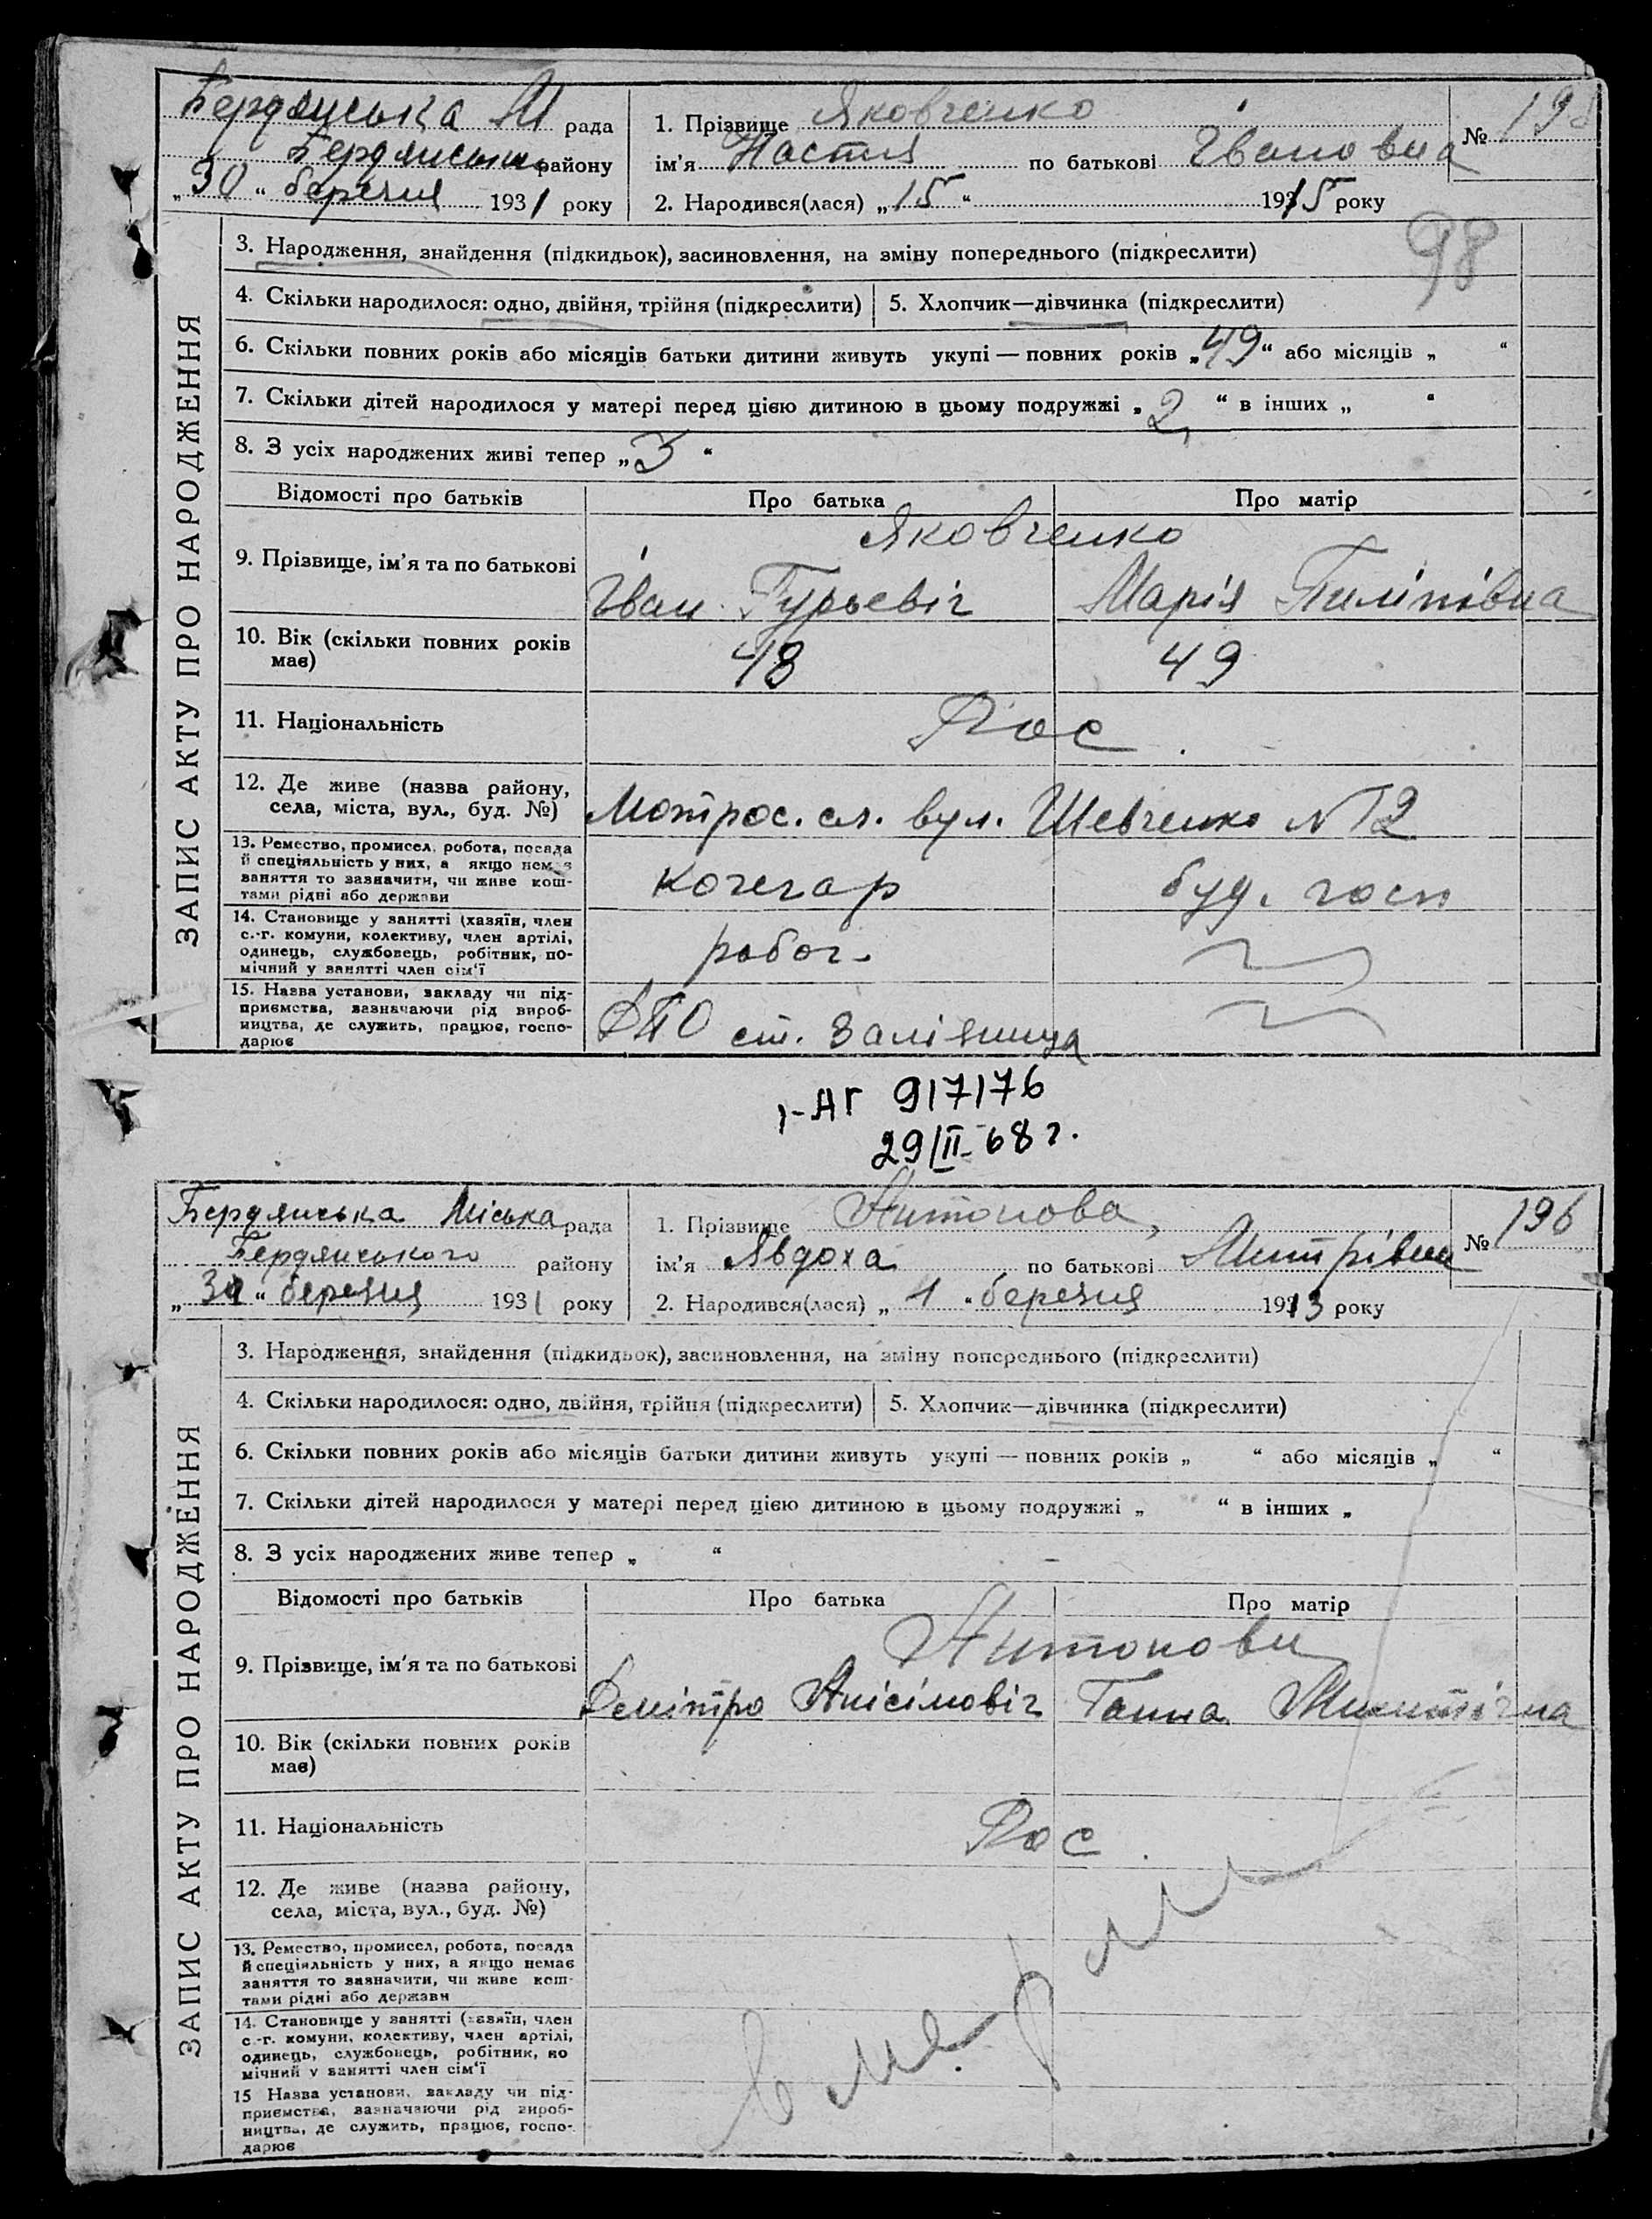 Бердянська М рада
Бердянськ району
„30“ березня 1931 року
1. Прізвище Яковченко
ім'я Настя по батькові Івановна
2. Народився(лася) „15“ 1915 року
№ 195
98
ЗАПИС АКТУ ПРО НАРОДЖЕННЯ
3. Народження, знайдення (підкидьок), засиновлення, на зміну попереднього (підкреслити)
4. Скільки народилося: одно, двійня, трійня (підкреслити) 5. Хлопчик—дівчинка (підкреслити)
6. Скільки повних років або місяців батьки дитини живуть укупі — повних років „49“ або місяців „ “
7. Скільки дітей народилося у матері перед цією дитиною в цьому подружжі „2“ в інших „ “
8. З усіх народжених живі тепер „3“
Відомості про батьків Про батька Про матір
Яковченко
9. Прізвище, ім'я та по батькові Іван Гурьевіч Марія Пиліпівна
10. Вік (скільки повних років має) 48 49
11. Національність Рос.
12. Де живе (назва району,
села, міста, вул., буд. №) Матрос. сл. вул. Шевченко № 12
13. Ремество, промисел, робота, посада
й спеціяльність у них, а якщо немає
заняття то зазначити, чи живе кош-
тами рідні або держави
кочегар буд. госп
14. Становище у занятті (хазяїн, член
с.-г. комуни, колективу, член артілі,
одинець, службовець, робітник, по-
мічний у занятті член сім'ї
робоч.
15. Назва установи, закладу чи під-
приємства, зазначаючи рід вироб-
ництва, де служить, працює, госпо-
дарює
ст. Залізниця
1-АГ 917176
29/II-68 г.
Бердянська Міська рада
Бердянського району
„30“ березня 1931 року
1. Прізвище Антонова,
ім'я Явдоха по батькові Митрівна
2. Народився(лася) „1“ березня 1913 року
№ 196
ЗАПИС АКТУ ПРО НАРОДЖЕННЯ
3. Народження, знайдення (підкидьок), засиновлення, на зміну попереднього (підкреслити)
4. Скільки народилося: одно, двійня, трійня (підкреслити) 5. Хлопчик—дівчинка (підкреслити)
6. Скільки повних років або місяців батьки дитини живуть укупі — повних років „ “ або місяців „ “
7. Скільки дітей народилося у матері перед цією дитиною в цьому подружжі „ “ в інших „
8. З усіх народжених живе тепер „ “
Відомості про батьків Про батька Про матір
Антонови
9. Прізвище, ім'я та по батькові Демітро Анісімовіч Ганна
10. Вік (скільки повних років
має)
11. Національність Рос.
12. Де живе (назва району,
села, міста, вул., буд. №)
13. Ремество, промисел, робота, посада
й спеціяльність у них, а якщо немає
заняття то зазначити, чи живе кош-
тами рідні або держави
14. Становище у занятті (хазяїн, член
с.-г. комуни, колективу, член артілі,
одинець, службовець, робітник, по
мічний у занятті член сім'ї
15 Назва установи, закладу чи під-
приємства, зазначаючи рід вироб-
ництва, де служить, працює, госпо-
дарює
вмерли